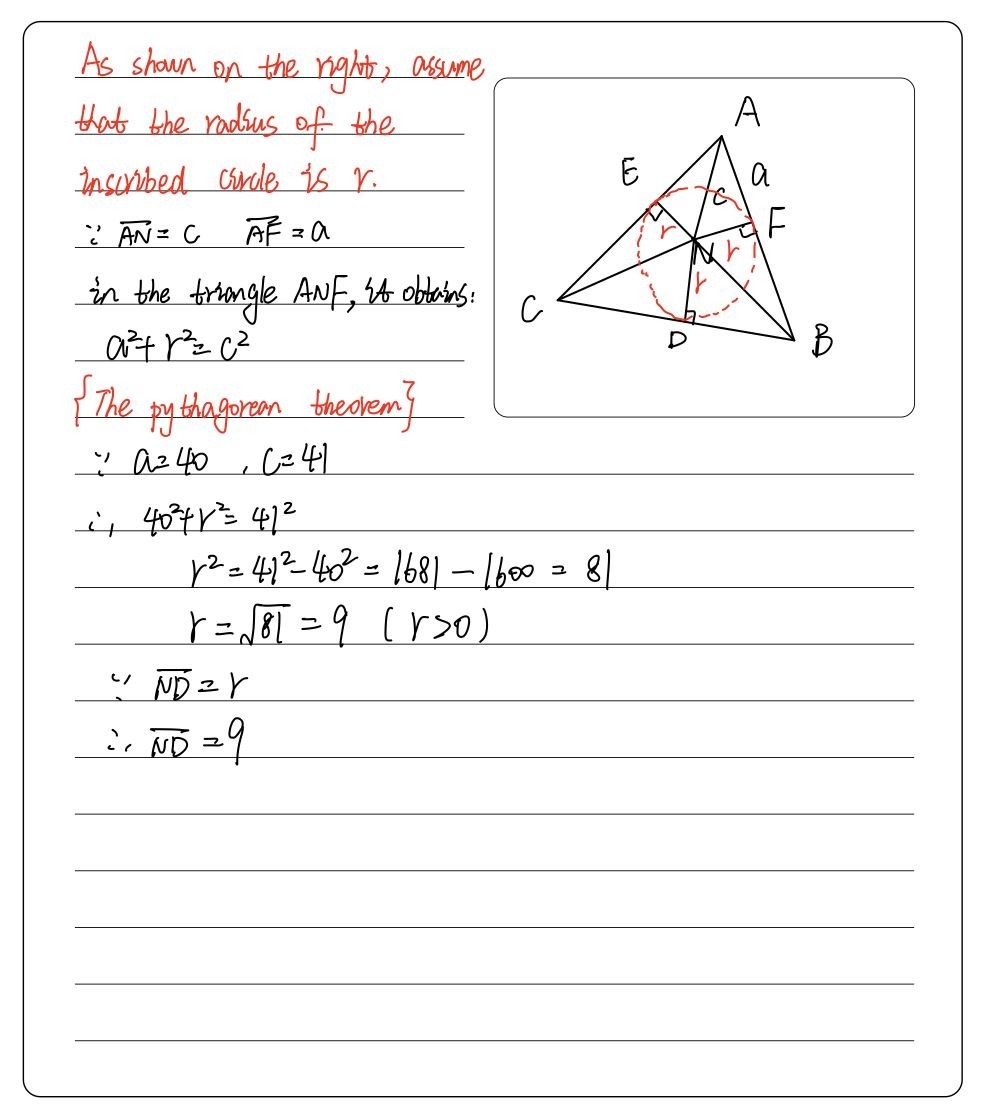 As shown on the right, assume
that the radius of the
inscribed circle is r.
∵ \overline{AN} = c  \overline{AF} = a
in the triangle ANF, it obtains:
a²+r²=c²
{The pythagorean theorem}
∵ a=40 , c=41
∴, 40²+r²=41²
r²=41²-40²=1681-1600=81
r=√81=9 (r>0)
∵ \overline{ND}=r
∴ \overline{ND}=9
A
E
a
c
F
r
r
N
r
C
D
B